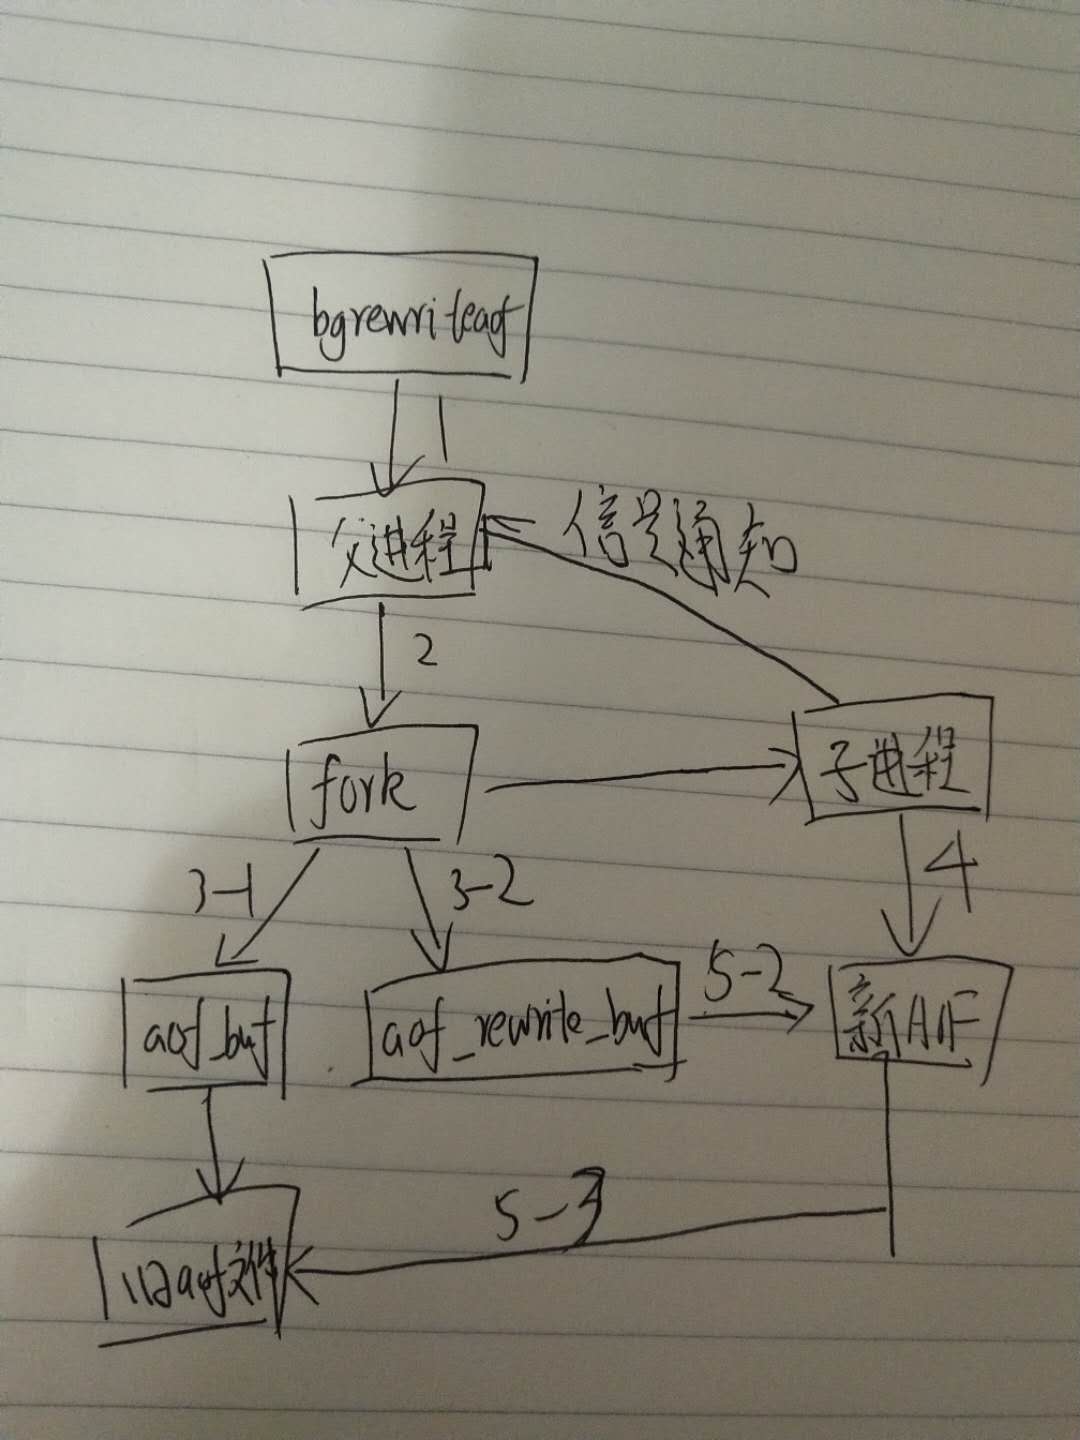 bgrewriteaof
1
父进程
信号通知
2
fork
子进程
3-1
3-2
4
aof_buf
aof_rewrite_buf
5-2
新AOF
5-3
旧aof文件